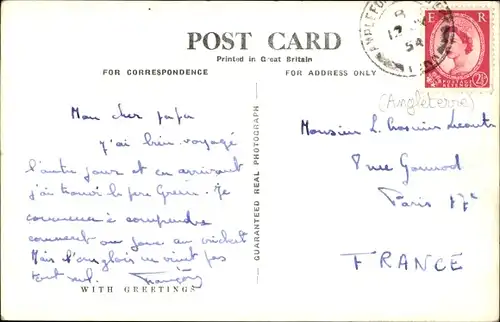 POST CARD
Printed in Great Britain
FOR CORRESPONDENCE
FOR ADDRESS ONLY
E R
POSTAGE REVENUE
2½
54
(Angleterre)
Mon cher papa
J'ai bien voyagé
l'autre jour et en arrivant
j'ai trouvé le père Green. Je
commence à comprendre
comment on joue au cricket
Mais l'anglais ne vient pas
tout seul. François
WITH GREETINGS
GUARANTEED REAL PHOTOGRAPH
Monsieur L.
7 rue Gounod
Paris 17e
FRANCE